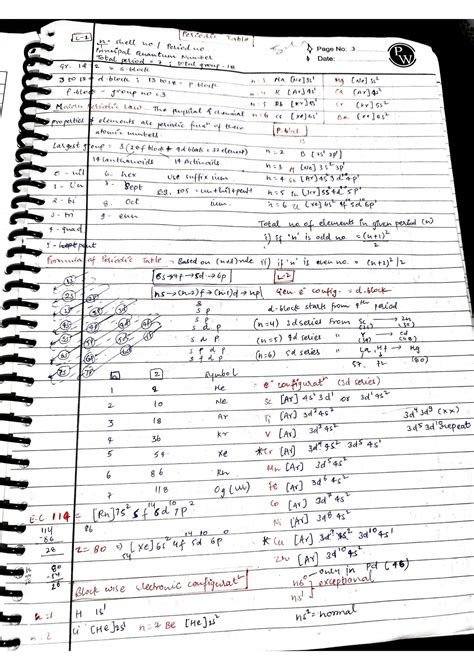 L-1
Periodic Table
Page No: 3
Date:
PW
n - shell no / Period no
Principal Quantum Number
Total period = 7 ; total group - 18
Gr. 1 & 2 = s-block
3 to 12 = d-block ; 13 to 18 = p block
f-block - group no = 3
Modern Periodic Law - The physical & chemical
properties of elements are periodic func^n of their
atomic numbers
Largest group = 3 (28 f block + 4 d block = 32 element)
14 lanthanoids 14 Actinoids
0 - nil 6. hex
use suffix ium
7. Sept
2 - bi 8. Oct
3 - tri 9. enn
4 - quad
n = 3 Na [Ne] 3s¹ Mg [Ne] 3s²
n = 4 K [Ar] 4s¹ Ca [Ar] 4s²
n = 5 Rb [Kr] 5s¹ Sr [Kr] 5s²
n = 6 Cs [Xe] 6s¹ Ba [Xe] 6s²
P-block
13
n = 2 B [He] 2s² 2p¹
Total no of elements in given period (n)
i) if 'n' is odd no = (n+1)²/2
ii) if 'n' is even no. = (n+2)²/2
Formula of Periodic Table - Based on (n+l) rule
6s → 4f → 5d → 6p
ns → (n-2)f → (n-1)d → np
L-2
Gen. e⁻ config - d-block
d-block starts from 4th period
(n=4) 3d series from Sc (21) → Zn (30)
(n=5) 4d series " Y → Cd (48)
(n=6) 5d series " La, Hf → Hg (80)
s
s p
s p
s d p
s d p
s f d p
s f d p
n Z Symbol
1 2 He
2 10 Ne
3 18 Ar
4 36 Kr
5 54 Xe
6 86 Rn
7 118 Og
e⁻ configurat^n (3d series)
Sc [Ar] 4s² 3d¹ or 3d¹ 4s²
Ti [Ar] 3d² 4s²
V [Ar] 3d³ 4s²
*Cr [Ar] 3d⁵ 4s¹
Mn [Ar] 3d⁵ 4s²
Fe [Ar] 3d⁶ 4s²
Co [Ar] 3d⁷ 4s²
Ni [Ar] 3d⁸ 4s²
*Cu [Ar] 3d¹⁰ 4s¹
Zn [Ar] 3d¹⁰ 4s²
repeat
E.C 114 = [Rn] 7s² 5f¹⁴ 6d¹⁰ 7p²
86
114
-86
28
Z = 80 ⇒ [Xe] 6s² 4f¹⁴ 5d¹⁰ 6p
54
80
-54
26
Block wise electronic configurat^n
ns⁰ - only in Pd (46)
ns¹ exceptional
ns² = normal
n = 1 H 1s¹
n = 2 Li [He] 2s¹ n = 2 Be [He] 2s²